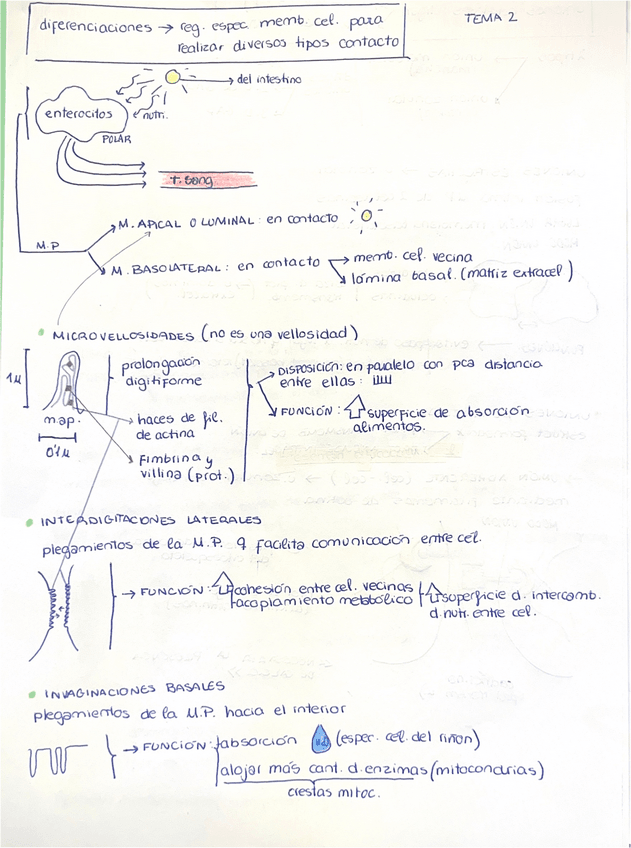 TEMA 2
diferenciaciones → reg. espec. memb. cel. para
realizar diversos tipos contacto
→ del intestino
enterocitos
nutri.
POLAR
t. sang
M.P
M. APICAL O LUMINAL: en contacto
M. BASOLATERAL: en contacto → memb. cel. vecina
lámina basal. (matriz extracel)
MICROVELLOSIDADES (no es una vellosidad)
1μ
prolongación
digitiforme
m.ap.
0'1μ
haces de fil.
de actina
Fimbrina y
villina (prot.)
DISPOSICIÓN: en paralelo con pca distancia
entre ellas:
FUNCIÓN: ⇧ superficie de absorción
alimentos.
INTERDIGITACIONES LATERALES
plegamientos de la M.P. q facilita comunicación entre cel.
→ FUNCIÓN: ⇧ cohesión entre cel. vecinas
acoplamiento metabólico
⇧ superficie d. intercamb.
d. nutr. entre cel.
INVAGINACIONES BASALES
plegamientos de la M.P. hacia el interior
→ FUNCIÓN: absorción (espec. cel. del riñón)
alojar más cant. d. enzimas (mitocondrias)
crestas mitoc.